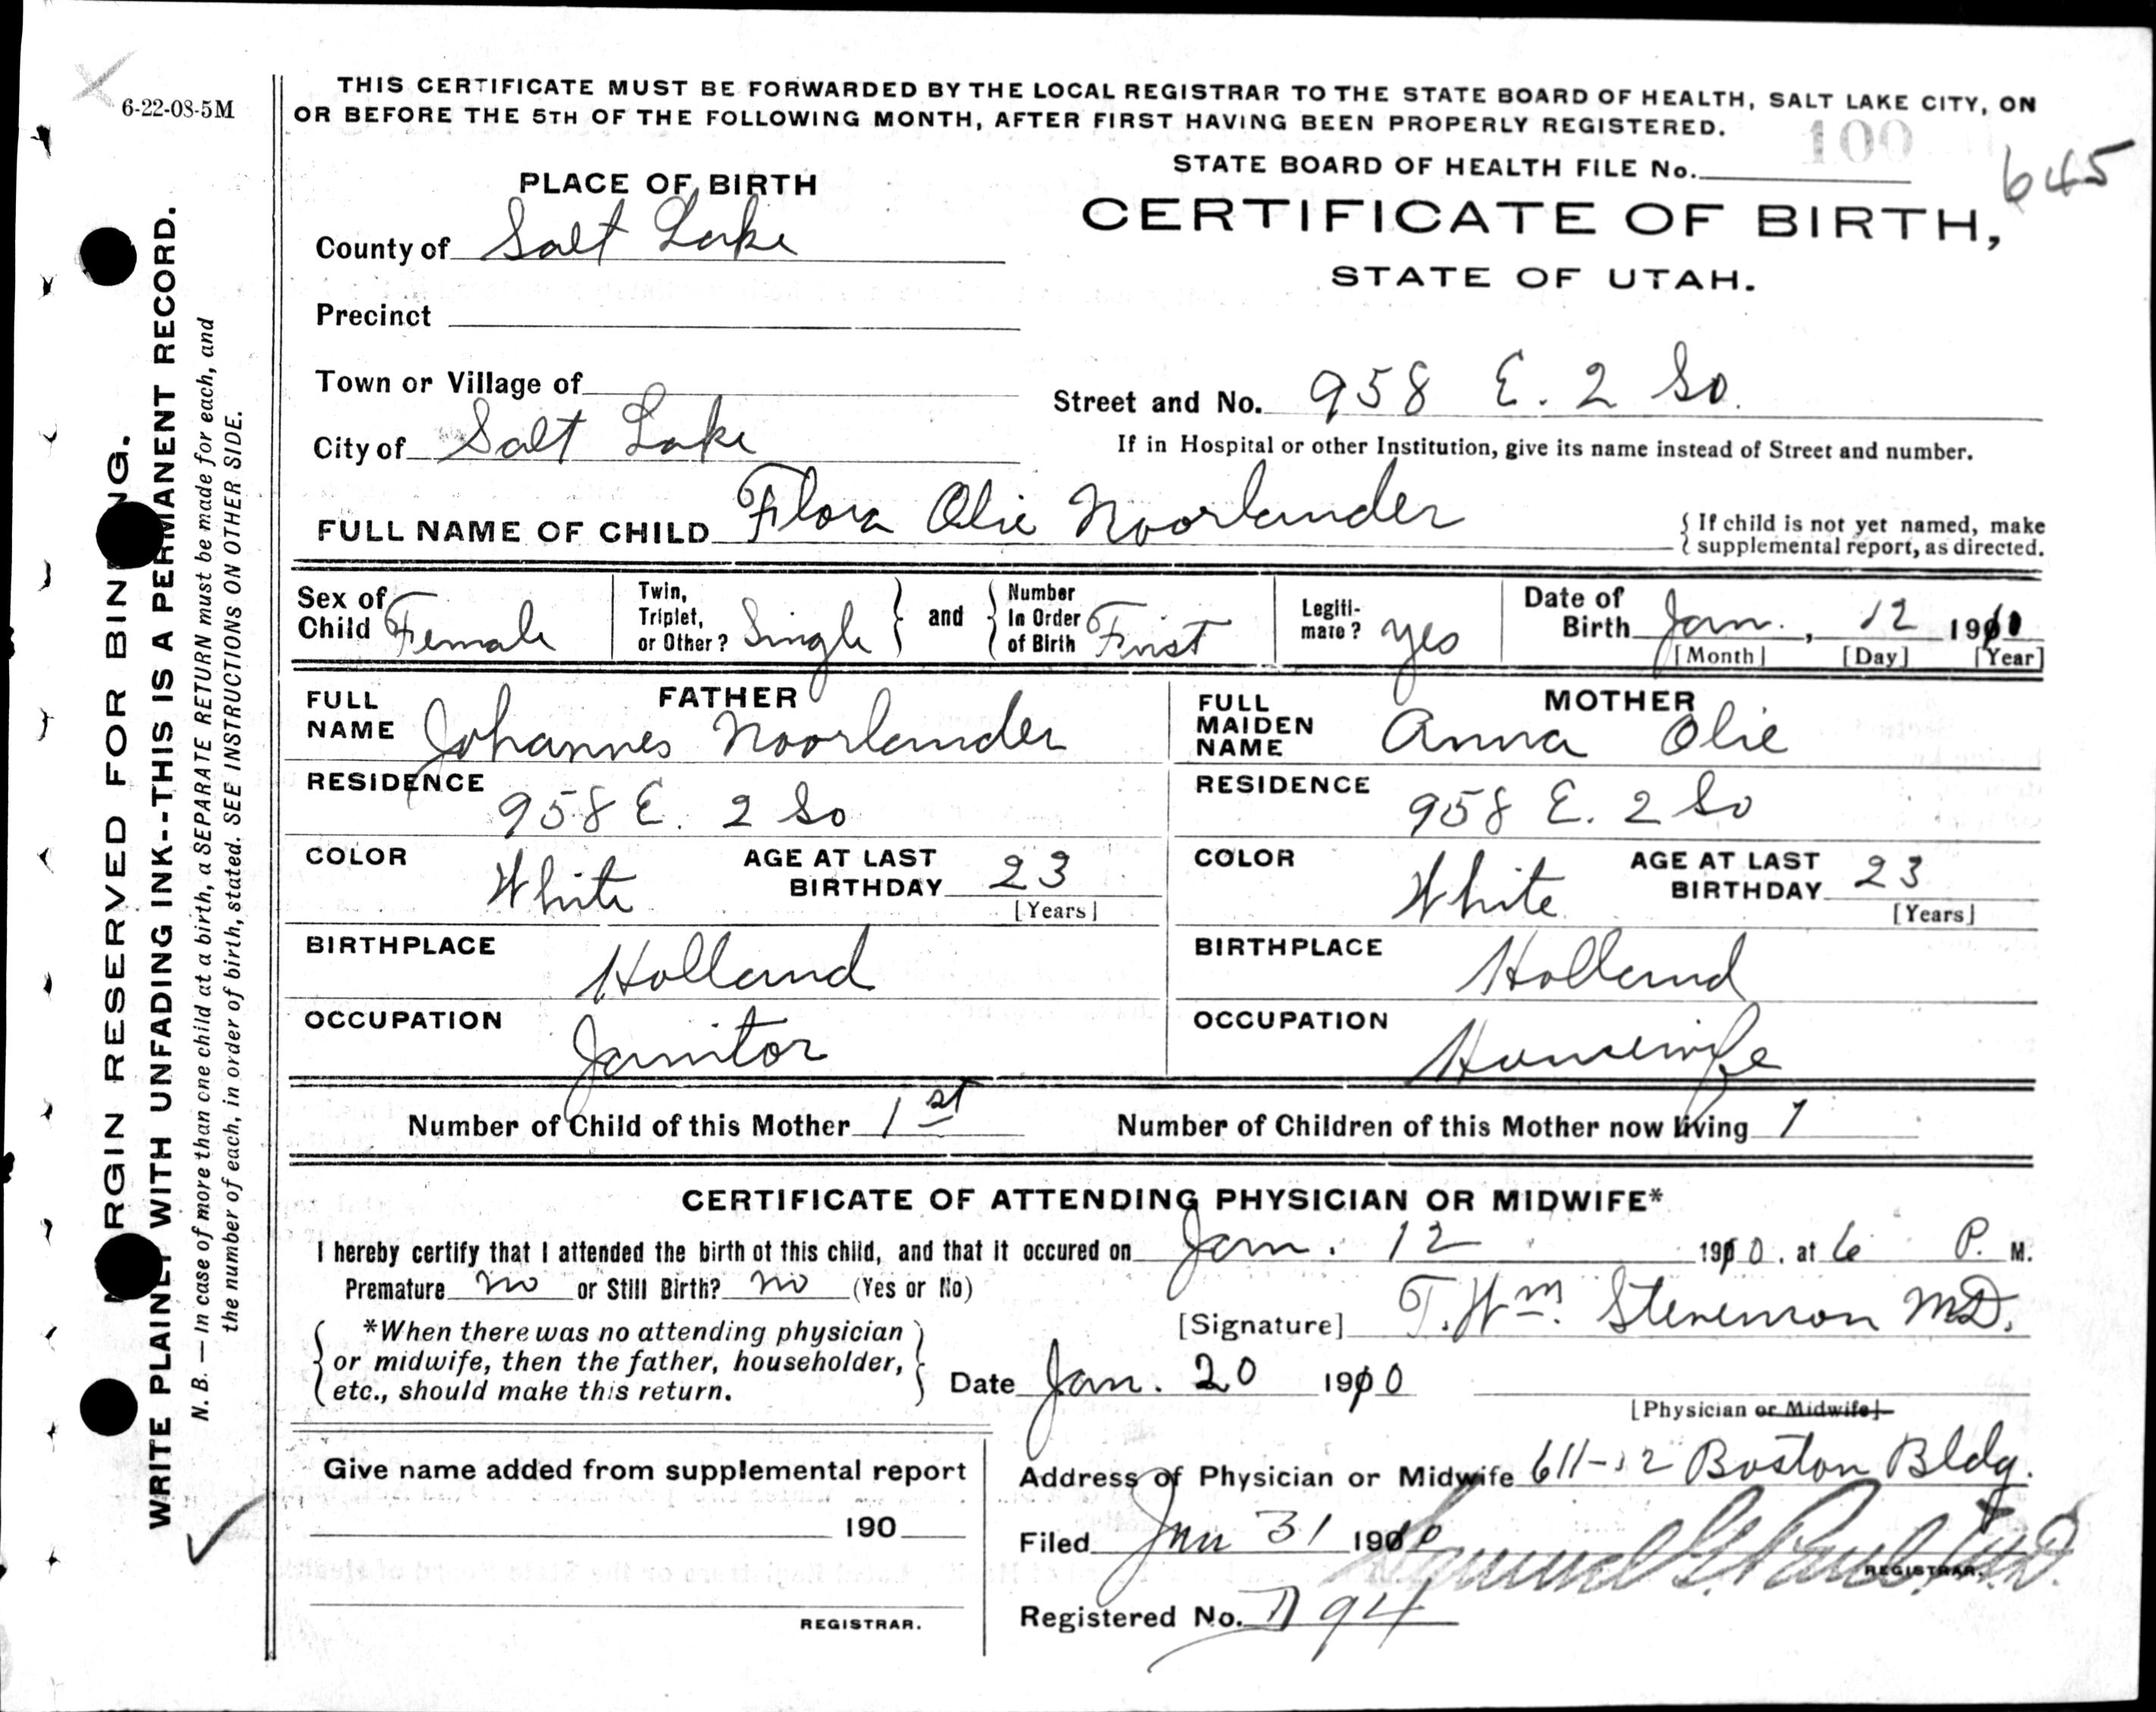 6-22-08-5M
THIS CERTIFICATE MUST BE FORWARDED BY THE LOCAL REGISTRAR TO THE STATE BOARD OF HEALTH, SALT LAKE CITY, ON
OR BEFORE THE 5TH OF THE FOLLOWING MONTH, AFTER FIRST HAVING BEEN PROPERLY REGISTERED.
100
STATE BOARD OF HEALTH FILE No. 645
CERTIFICATE OF BIRTH,
STATE OF UTAH.
PLACE OF BIRTH
County of Salt Lake
Precinct
Town or Village of
City of Salt Lake
Street and No. 958 E. 2 So.
If in Hospital or other Institution, give its name instead of Street and number.
FULL NAME OF CHILD Flora Olie Noorlander
{ If child is not yet named, make
supplemental report, as directed.
Sex of Child Female
Twin, Triplet, or Other? Single } and { Number In Order of Birth First
Legiti- mate? yes
Date of Birth Jan. , 12 1910
[Month] [Day] [Year]
FATHER
FULL NAME Johannes Noorlander
RESIDENCE 958 E. 2 So
COLOR White AGE AT LAST BIRTHDAY 23
[Years]
BIRTHPLACE Holland
OCCUPATION Janitor
MOTHER
FULL MAIDEN NAME Anna Olie
RESIDENCE 958 E. 2 So
COLOR White AGE AT LAST BIRTHDAY 23
[Years]
BIRTHPLACE Holland
OCCUPATION Housewife
Number of Child of this Mother 1st Number of Children of this Mother now living 1
CERTIFICATE OF ATTENDING PHYSICIAN OR MIDWIFE*
I hereby certify that I attended the birth of this child, and that it occured on Jan. 12 1910, at 6 P. M.
Premature no or Still Birth? no (Yes or No)
[Signature] T. Wm. Stevenson MD.
*When there was no attending physician
or midwife, then the father, householder,
etc., should make this return.
Date Jan. 20 1910
[Physician or Midwife]
Give name added from supplemental report
190
REGISTRAR.
Address of Physician or Midwife 611-12 Boston Bldg.
Filed Jan 31 1910 Samuel G. Paul, M.D.
REGISTRAR.
Registered No. 94
RGIN RESERVED FOR BIN NG.
WRITE PLAINLY WITH UNFADING INK--THIS IS A PERMANENT RECORD.
N. B. — In case of more than one child at a birth, a SEPARATE RETURN must be made for each, and
the number of each, in order of birth, stated. SEE INSTRUCTIONS ON OTHER SIDE.